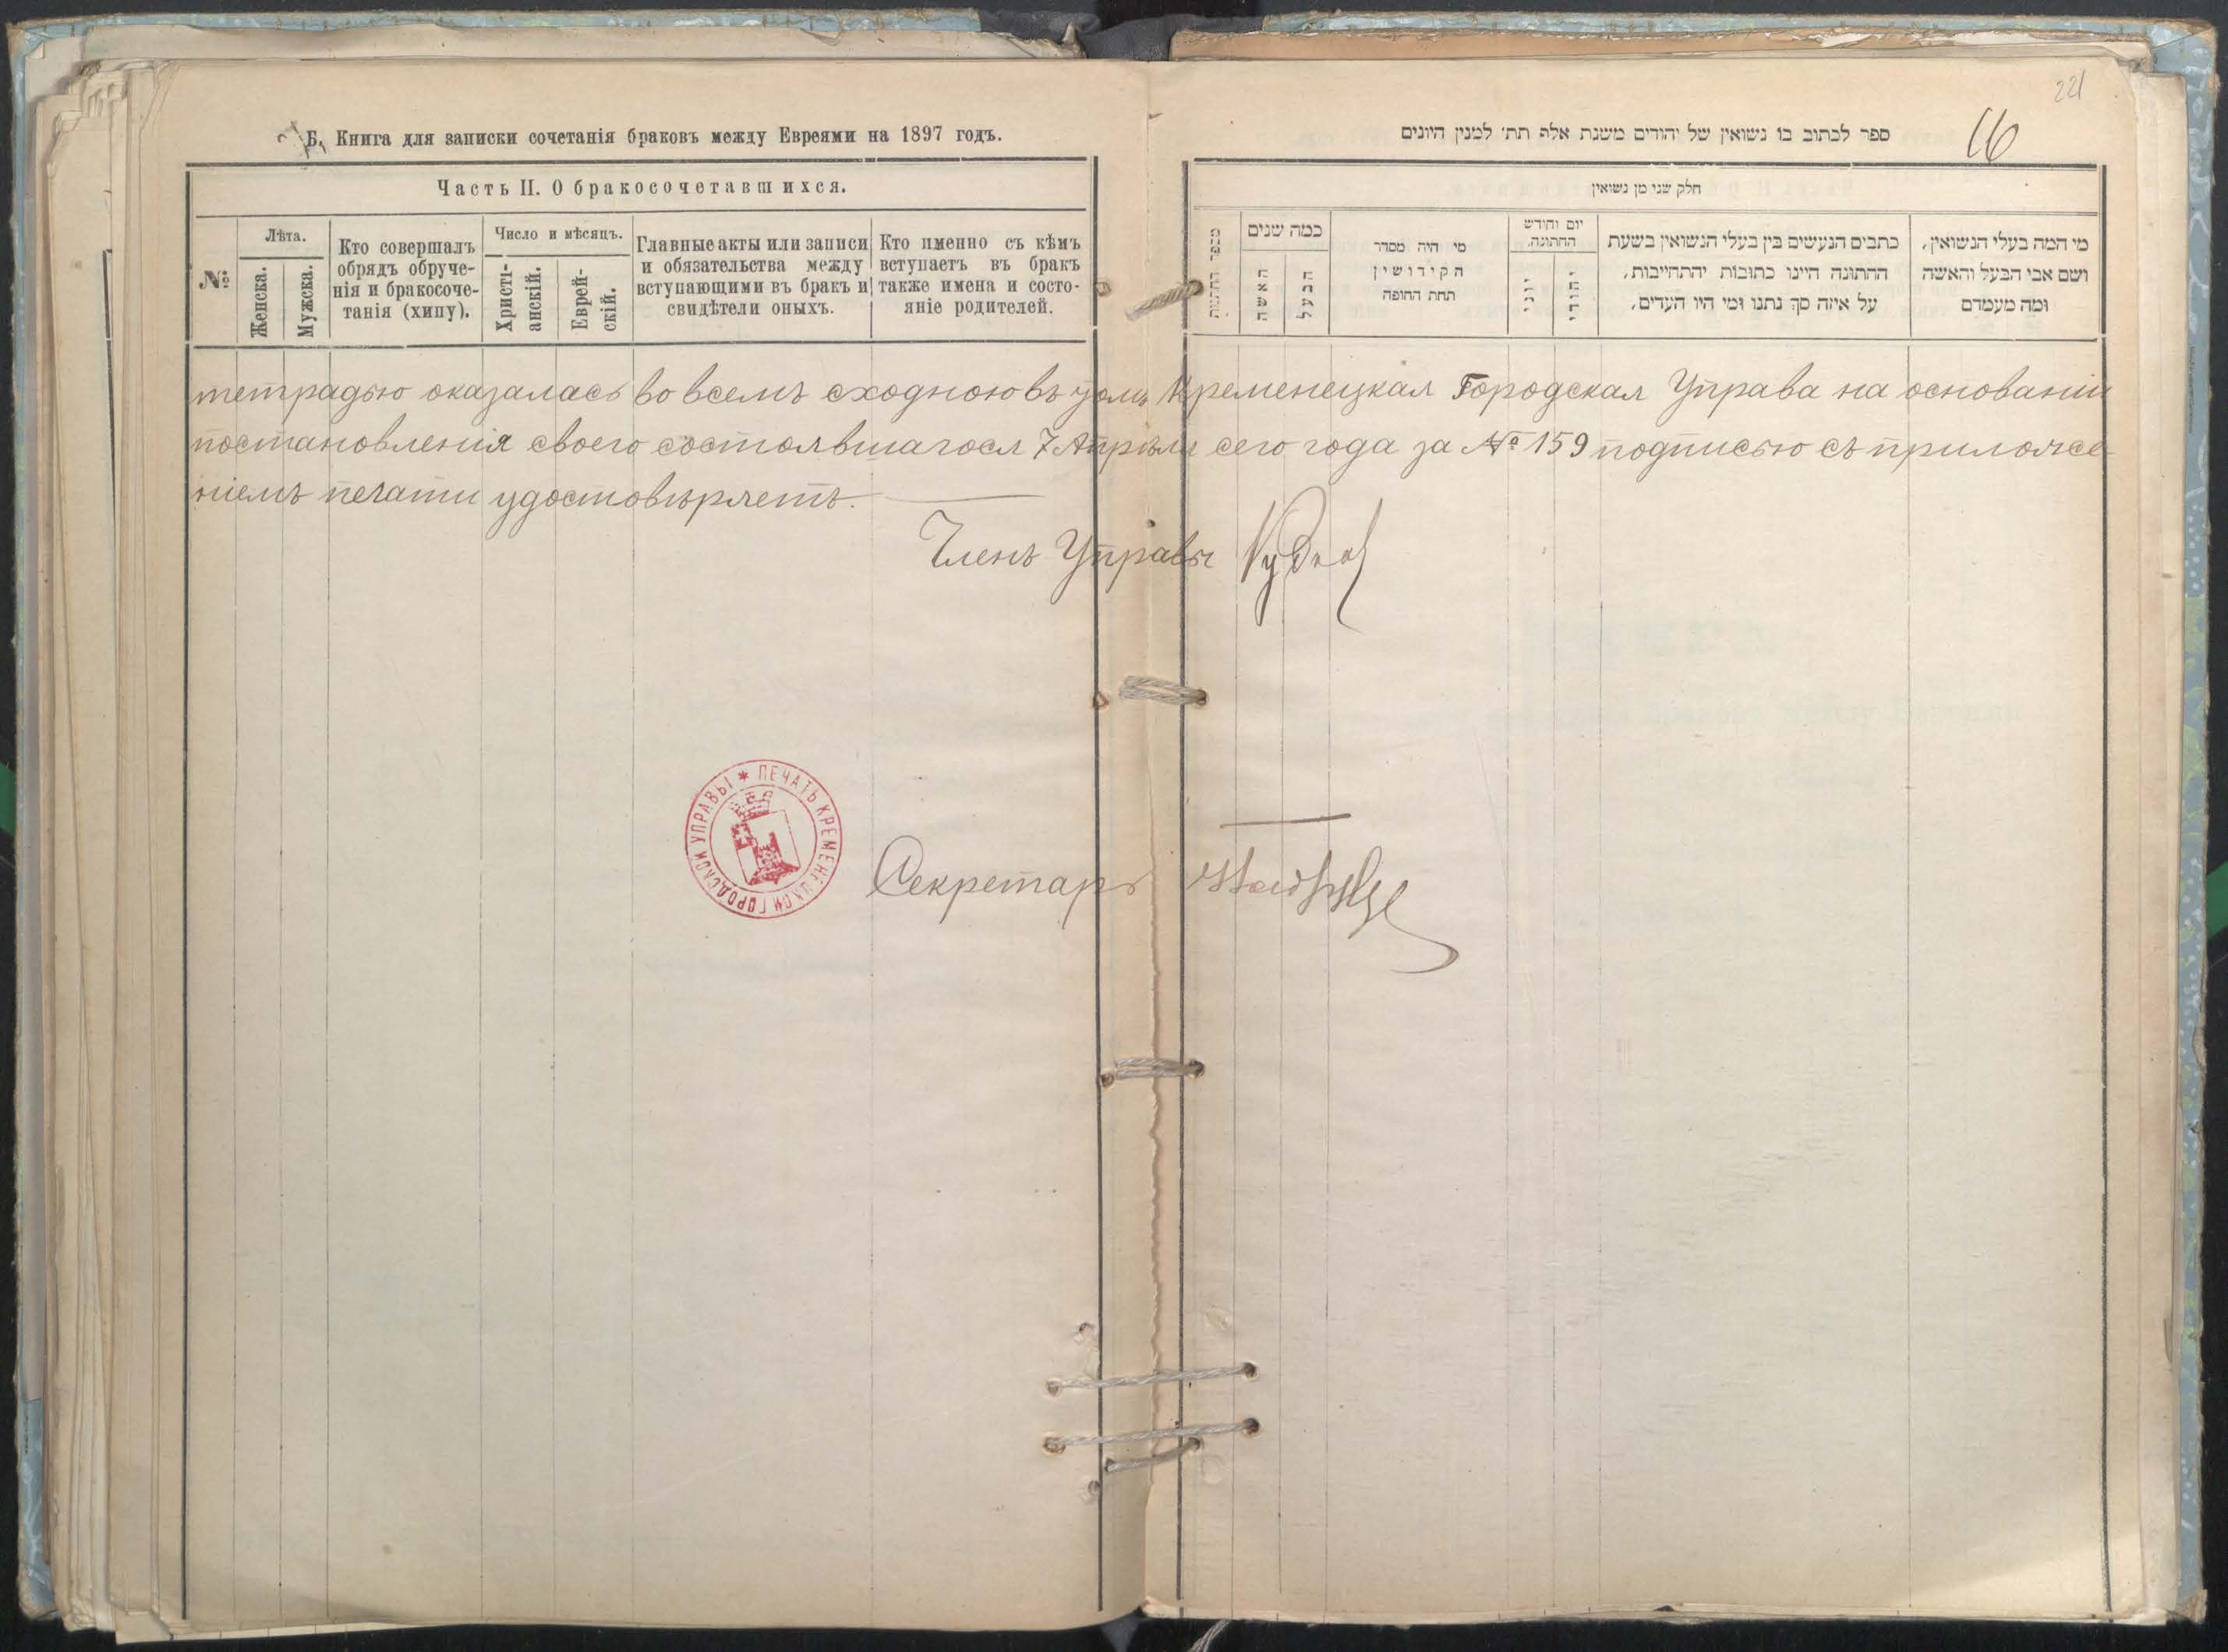 221
16
Б. Книга для записки сочетанія браковъ между Евреями на 1897 годъ.
Часть II. О бракосочетавшихся.
№
Лѣта.
Женска.
Мужска.
Кто совершалъ
обрядъ обруче-
нія и бракосоче-
танія (хипу).
Число и мѣсяцъ.
Христі-
анскій.
Еврей-
скій.
Главные акты или записи
и обязательства между
вступающими въ бракъ и
свидѣтели оныхъ.
Кто именно съ кѣмъ
вступаетъ въ бракъ
также имена и состо-
яніе родителей.
ספר לכתוב בו נשואין של יהודים משנת אלף תת׳ למנין היונים
חלק שני מן נשואין
מי המה בעלי הנשואין,
ושם אבי הבעל והאשה
ומה מעמדם
כתבים הנעשים בין בעלי הנשואין בשעת
החתונה היינו כתובות והתחייבות,
על איזה סך נתנו ומי היו העדים,
יום וחודש
החתונה.
יהודי
יוני
מי היה מסדר
הקידושין
תחת החופה
כמה שנים
הבעל
האשה
тетрадью оказалась во всемъ сходною въ томъ Кременецкая Городская Управа на основаніи
постановленія своего состоявшагося 7 Апрѣля сего года за № 159 подписью съ приложе-
ніемъ печати удостовѣряетъ.
Членъ Управы
ПЕЧАТЬ КРЕМЕНЕЦКОЙ ГОРОДСКОЙ УПРАВЫ
Секретарь